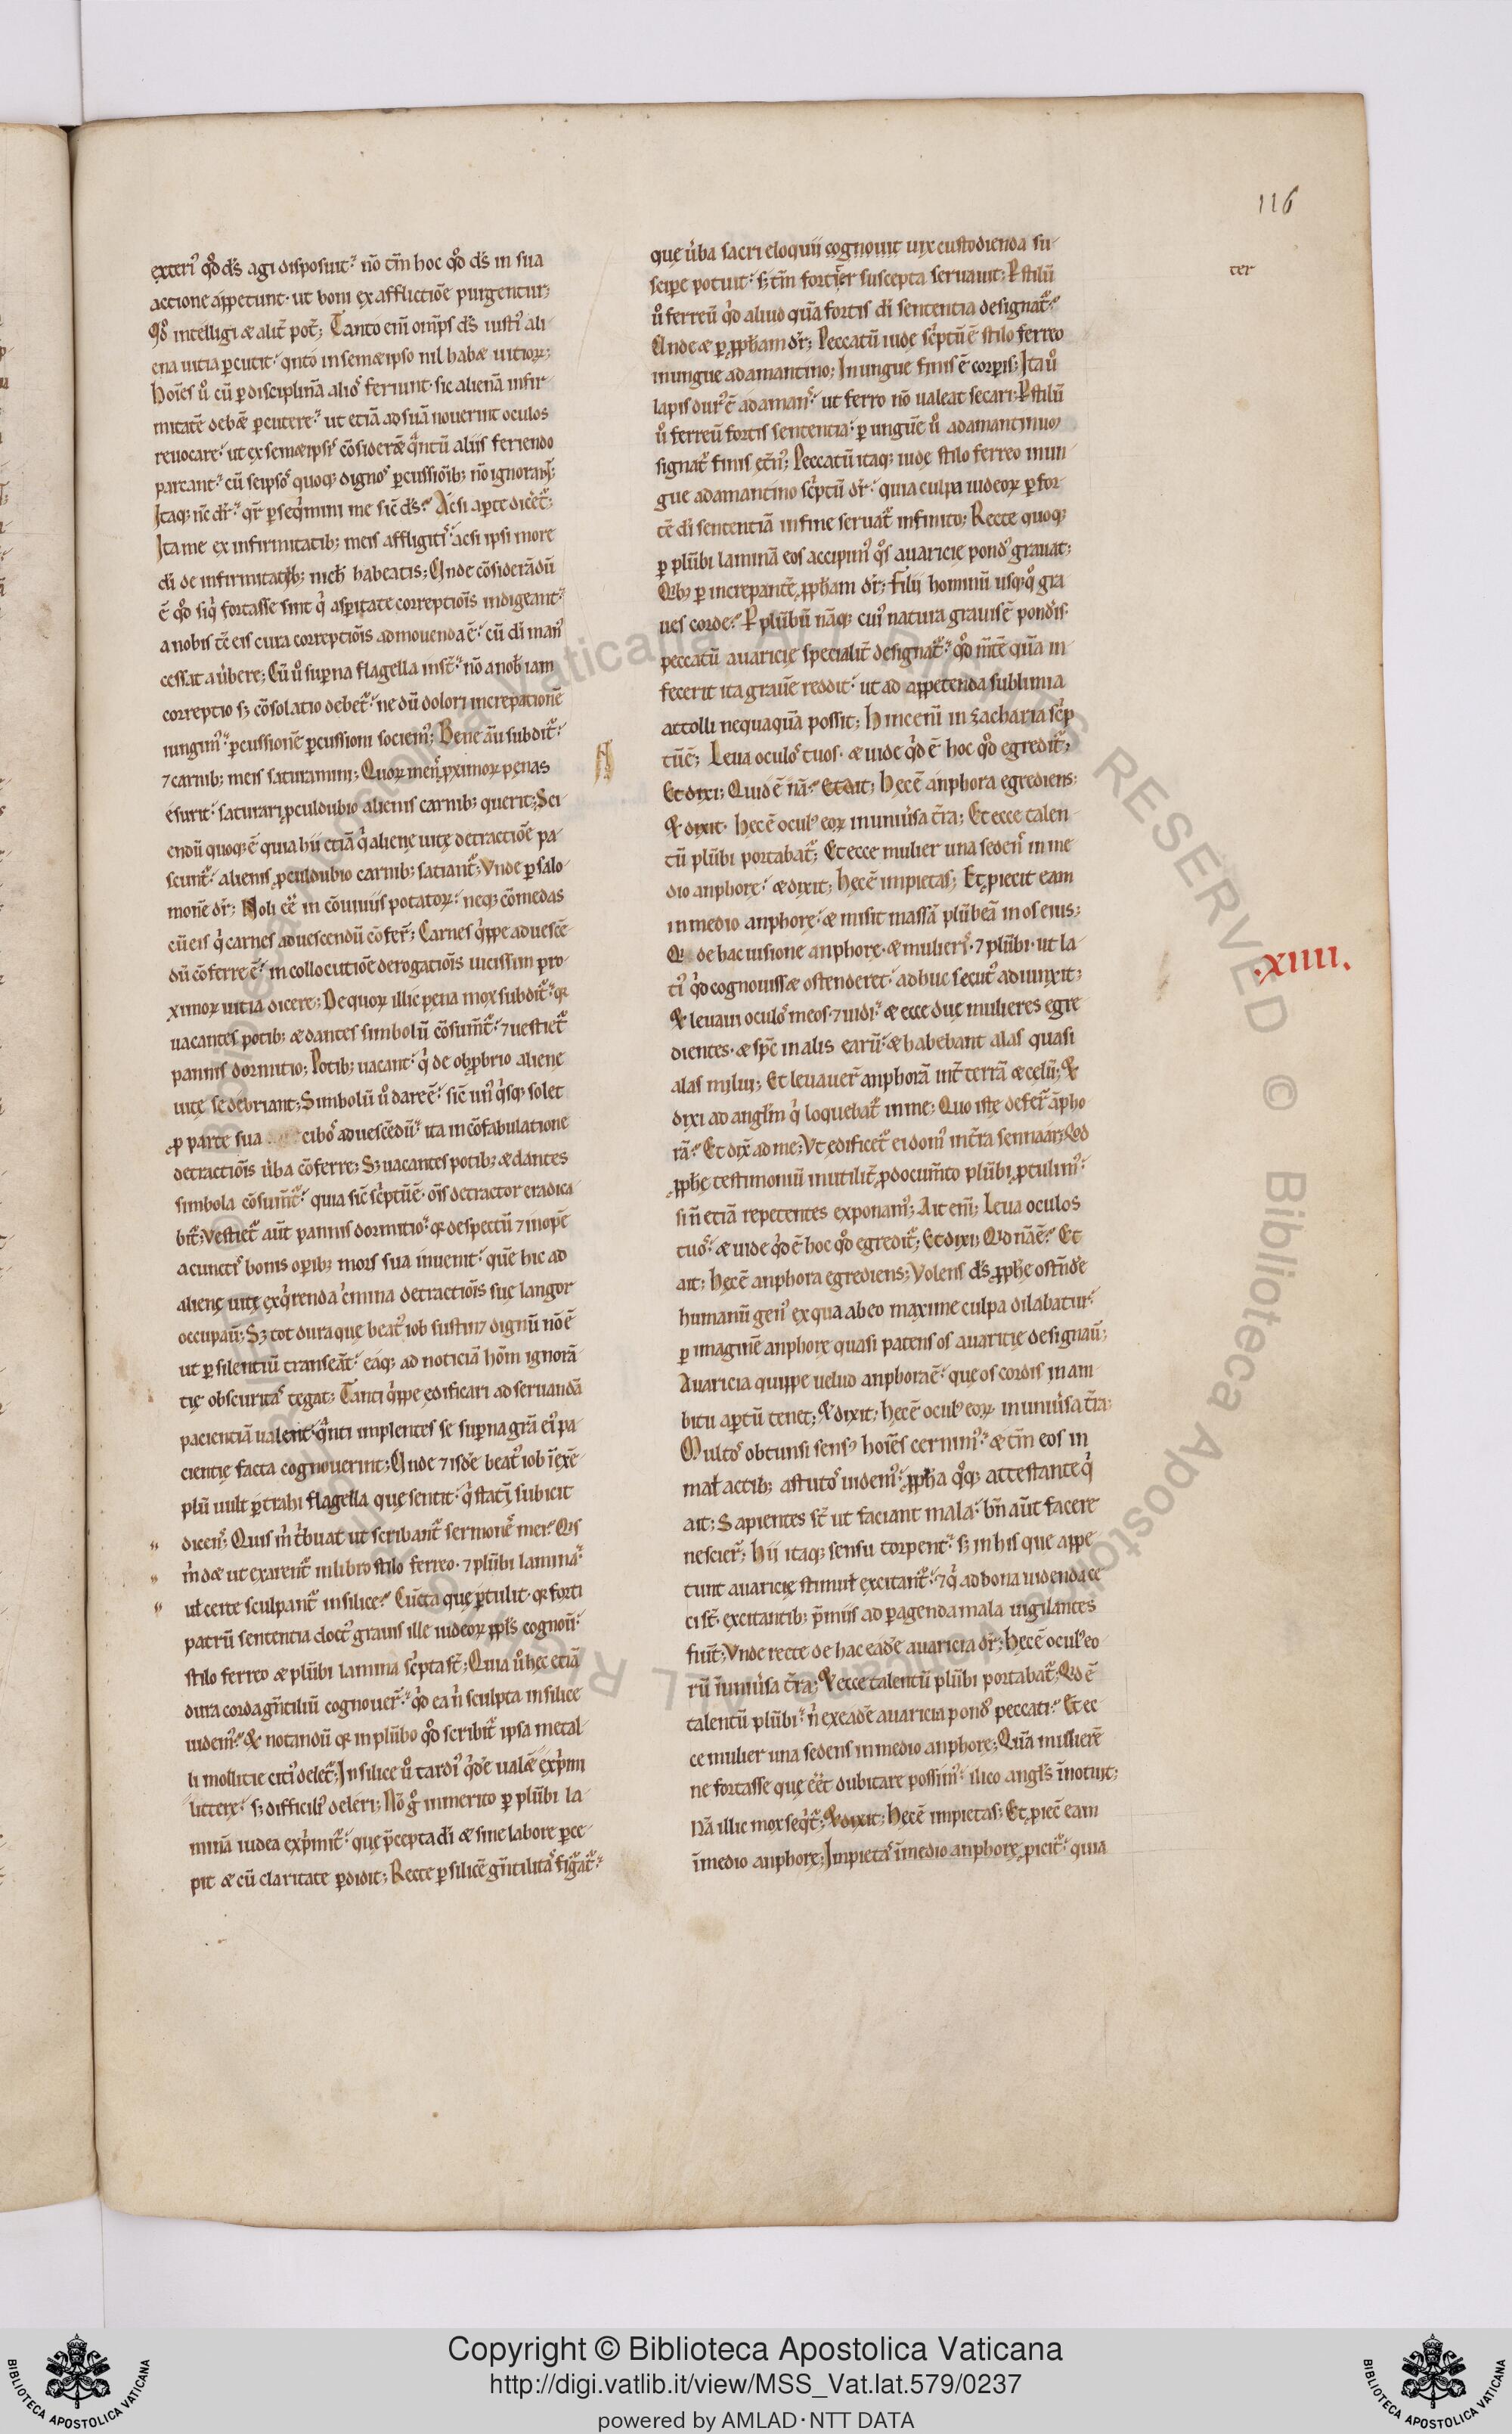 116
exteriꝰ qđ dš agi disposuit. nō tm̄ hoc qđ dš in sua
actione appetunt. ut boni ex afflictiōe purgentur;
Qđ intelligi & alit̄ pot̄; Tanto eni omp̄s dš iustiꝰ ali
ena uitia ꝑcutit. qnto in semetipso nil habet uitioꝝ;
hoīes ū cū ꝑ disciplinā alios feriunt. sic alienā infir
mitatē debēt ꝑcutere. ut etiā ad suā nouerint oculos
reuocare. ut ex semetipsis cōsiderēt qntū aliis feriendo
parcant. cū seipsos quoq; dignos ꝑcussiōib; nō ignorant;
Itaq; nc̄ dr̄. qr̄ ꝑseqmini me sic̄ dš. Ac̄si aꝑte dicet̄;
Ita me ex infirmitatib; meis affligitis. acsi ipsi more
dī de infirmitatib; nich̄ habeatis; Unde cōsiderādū
ē qđ siq fortasse sint q asꝑitate correptiōis indigeant.
a nobis tc̄ eis cura correptiōis admouenda ē. cū dī manꝰ
cessat a ūbere; Cū ū suꝑna flagella inst̄. nō a nob̄ iam
correptio s; cōsolatio debet̄. ne dū dolori increpationē
iungimꝰ. ꝑcussionē ꝑcussioni sociemꝰ; Bene aū subdit̄.
⁊ carnib; meis saturamini; Quoꝝ mens ꝓximoꝝ penas
esurit. saturari ꝓculdubio alienis carnib; querit; Sci
endū quoq; ē quia hii etiā q alienę uitę detractiōe pa
scunt̄. alienis ꝓculdubio carnib; satiant̄; Vnde ꝑ salo
monē dr̄; Noli eē in cōuiuiis potatoꝝ. neq; cōmedas
cū eis q carnes ad uescendū cōfer̄; Carnes qippe ad uescē
dū cōferre ē. in collocutiōe derogatiōis uicissim pro
ximoꝝ uitia dicere; De quoꝝ illic pena mox subdit̄. qr
uacantes potib; & dantes simbolū cōsum̄t̄. ⁊ uestiet̄
pannis dormitio; Potib; uacant. q de obꝓbrio alienę
uitę se debriant; Simbolū ū dare ē. sic̄ unꝰ qsq; solet
ꝓ parte sua cibos ad uescēdū. ita in cōfabulatione
detractiōis ūba cōferre; S; uacantes potib; & dantes
simbola cōsum̄t̄. quia sic̄ sc̄ptū ē. oīs detractor eradica
bit̄; Vestiet̄ aūt pannis dormitio. qr despectū ⁊ inopē
a cunctis bonis oꝑib; mors sua inuenit. quē hic ad
alienę uitę exqrenda cimina detractiōis suę langor
occupaū; S; tot dura que beatꝰ iob sustin; dignū nō ē
ut ꝑ silentiū transeāt. eaq; ad noticiā hōm ignorā
tię obscuritas tegat; Tanti qippe edificari ad seruandā
pacientiā ualent. qnti implentes se suꝑna grā eiꝰ pa
cientię facta cognouerint; Unde ⁊ isdē beatꝰ iob ī exē
plū uult ꝑtrahi flagella quę sentit. q statī subicit
dicens; Quis m̄ t̄buat ut scribant̄ sermones mei. Qis
m̄ det ut exarent̄ in libro stilo ferreo. ⁊ plūbi lamina.
ul̄ certe sculpant̄ in silice. Cūcta que ꝑtulit. qr forti
patrū sententia doctꝰ grauis ille iudeoꝝ ppl̄s cognoū.
stilo ferreo & plūbi lamina sc̄pta st̄; Quia ū hęc etiā
dura corda gn̄tiliū cognouer̄. qd ea n̄ sculpta in silice
uidemꝰ. Et notandū qr in plūbo qđ scribit̄ ipsa metal
li mollitie citiꝰ delet̄; In silice ū tardiꝰ qdē ualēt exp̄mi
litterę. s; difficiliꝰ deleri; Nō g inmerito ꝑ plūbi la
minā iudea exp̄mit̄. que p̄cepta dī & sine labore ꝑce
pit & cū claritate ꝑdidit; Recte ꝑ silicē gn̄tilitas figat̄.
quę ūba sacri eloquii cognouit uix custodienda su
scipe potuit. s; tm̄ fortit̄er suscepta seruauit; P stilū
ter
ū ferreū qd aliud quā fortis dī sententia designat̄.
Unde & ꝑ ꝓph̄am dr̄; Peccatū iudę sc̄ptū ē stilo ferreo
in ungue adamantino; In ungue finis ē corꝑis; Ita ū
lapis durꝰ ē adamans. ut ferro nō ualeat secari; P stilū
ū ferreū fortis sententia. ꝑ unguē ū adamantinuo
signat̄ finis et̄nꝰ; Peccatū itaq; iudę stilo ferreo in un
gue adamantino sc̄ptū dr̄. quia culpa iudeoꝝ ꝑ for
tē dī sententiā in fine seruat̄ infinito; Recte quoq;
ꝑ plūbi laminā eos accipimꝰ qs auaricię pondꝰ grauat;
Qib; ꝑ increpantē ꝓph̄am dr̄; Filii hominū usq;q gra
ues corde. P plūbū nāq; cuiꝰ natura grauis ē pondis.
peccatū auaricię specialit̄ designat̄. qđ m̄tē quā in
fecerit ita grauē reddit. ut ad appetenda sublimia
attolli nequaquā possit; Hinc enī in zacharia sc̄p
tū ē; Leua oculos tuos. & uide qd ē hoc qđ egredit̄;
Et dixi; Quid ē nā. Et ait; Hęc ē anphora egrediens.
Et dixit. hęc ē oculꝰ eoꝝ in uniūsa t̄ra; Et ecce talen
tū plūbi portabat̄; Et ecce mulier una sedens in me
dio anphorę. & dixit; Hęc ē impietas; Et ꝓiecit eam
in medio anphorę. & misit massā plūbeā in os eius;
Q de hac uisione anphorę. & mulieris. ⁊ plūbi. ut la
tiꝰ qd cognouisset ostenderet. adhuc secutꝰ adiunxit;
.XIIII.
Et leuaui oculos meos. ⁊ uidi. & ecce duę mulieres egre
dientes. & spc̄ in alis earū. & habebant alas quasi
alas milui; Et leuauer̄ anphorā int̄ terrā & cęlū; Et
dixi ad angl̄m q loquebat̄ in me; Quo iste defer̄ āpho
rā. Et dix̄ ad me; Vt edificet̄ ei domꝰ in t̄ra sennaar; Qd
ꝓph̄ę testimoniū inutilit̄ ꝓ docum̄to plūbi ꝓtulimꝰ.
si n̄ etiā repetentes exponamꝰ; Ait eni; Leua oculos
tuos. & uide qd ē hoc qđ egredit̄; Et dixi; Qd nā ē. Et
ait; Hęc ē anphora egrediens; Volens dš ꝓph̄ę ostn̄dē
humanū genꝰ ex qua ab eo maxime culpa dilabatur.
ꝑ imaginē anphorę quasi patens os auaritię designaū;
Auaricia quippe uelud anphora ē. que os cordis in am
bitu aꝑtū tenet; Et dixit; Hęc ē oculꝰ eoꝝ in uniūsa t̄ra;
Multos obtunsi sensꝰ hoīes cernimꝰ. & tm̄ eos in
mal̄ actib; astutos uidemꝰ. ꝓph̄a qq; attestante q
ait; Sapientes st̄ ut faciant mala. bn̄ aūt facere
nescier̄; Hii itaq; sensu torpent. s; in his que appe
tunt auaricię stimul̄ excitant̄. ⁊ q ad bona uidenda ce
ci st̄. excitantib; p̄miis ad ꝑagenda mala uigilantes
fiūt; Vnde recte de hac eadē auaricia dr̄; Hęc ē oculꝰ eo
rū ī uniūsa t̄ra; Et ecce talentū plūbi portabat̄; Qd ē
talentū plūbi. n̄ ex eadē auaricia pondꝰ peccati. Et ec
ce mulier una sedens in medio anphorę; Quā mulierē
ne fortasse que eēt dubitare possimꝰ. ilico angl̄s īnotuit;
Nā illic mox seqt̄; Et dixit; Hęc ē impietas; Et ꝓiec̄ eam
ī medio anphorę; Impietas ī medio anphorę ꝓicit̄. quia
Copyright © Biblioteca Apostolica Vaticana
http://digi.vatlib.it/view/MSS_Vat.lat.579/0237
powered by AMLAD·NTT DATA
BIBLIOTECA APOSTOLICA VATICANA
BIBLIOTECA APOSTOLICA VATICANA